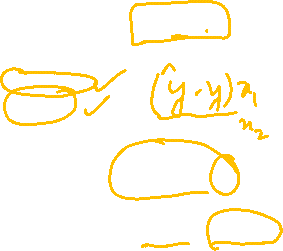 (ŷ - y) x₁
x₂